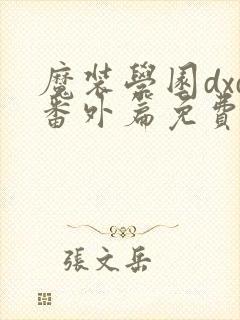 魔装學園dxd
番外篇免費
張文岳